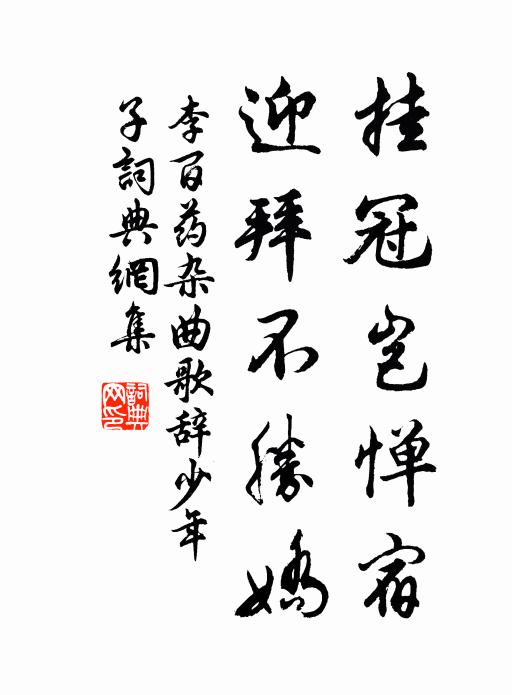 挂冠岂惮宿
迎拜不勝嬌
李百药杂曲歌辞少年
子詞典網集
詞典
网印